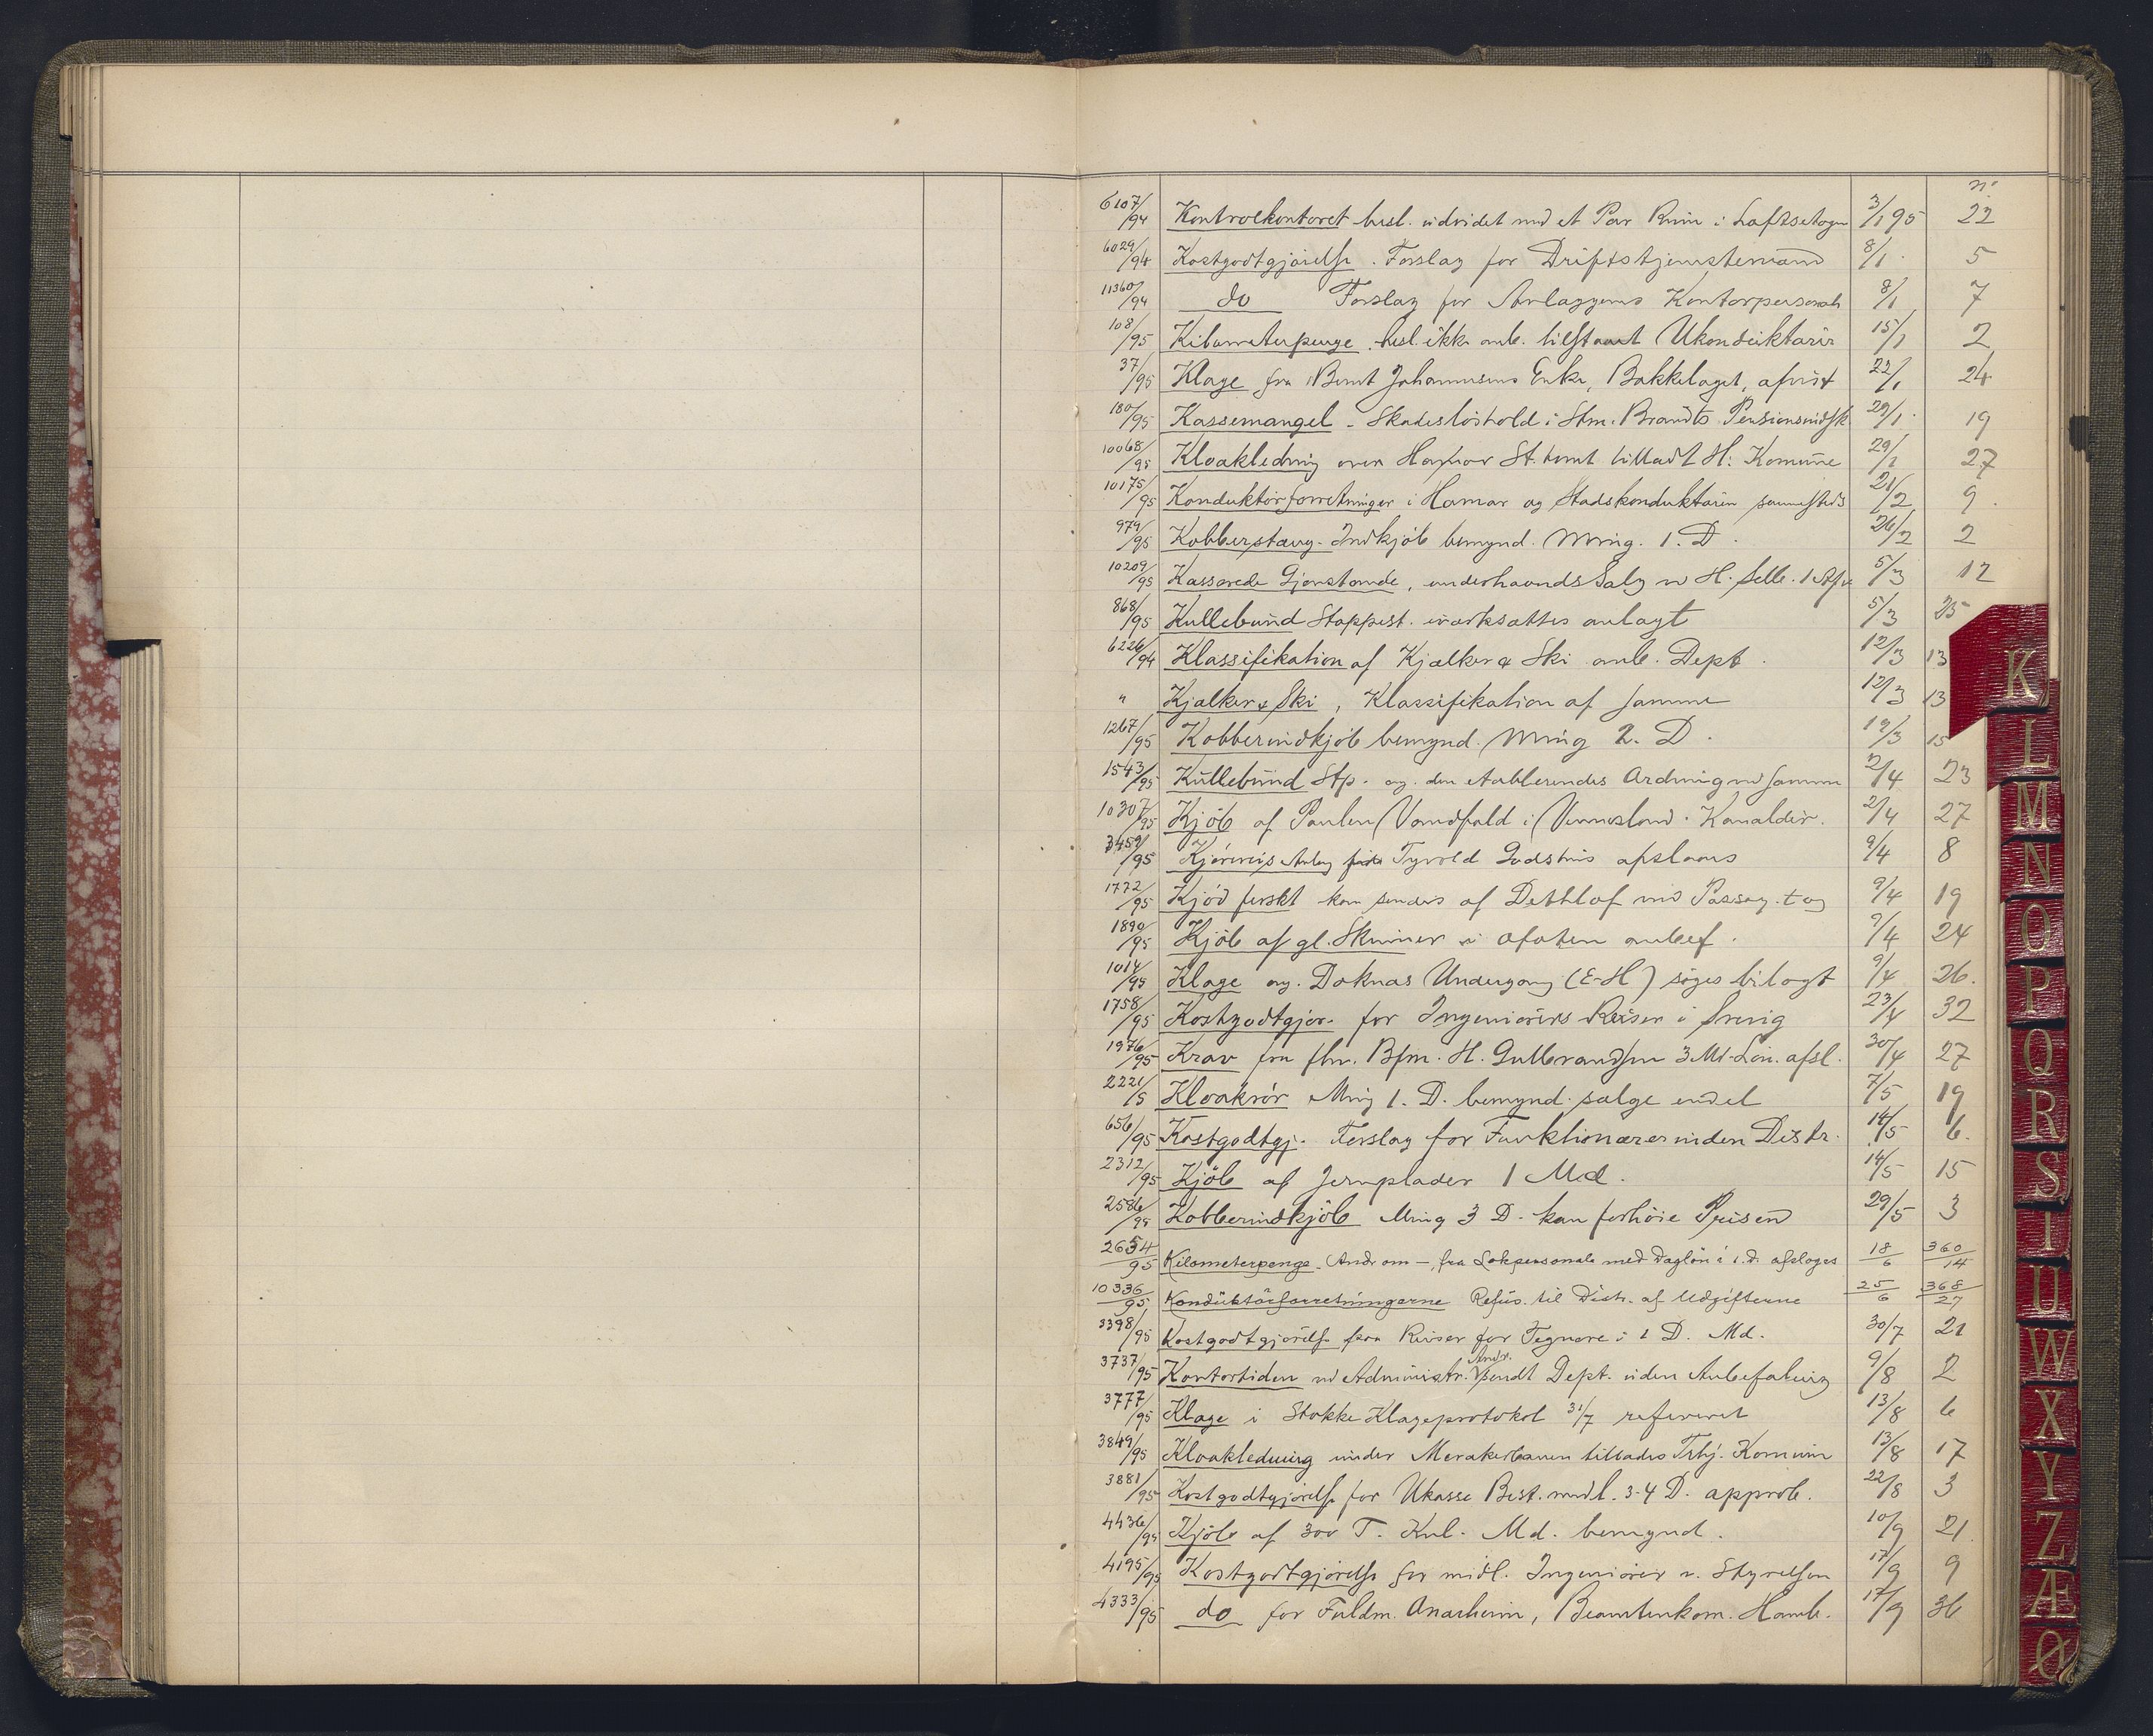 n°
6107/94 Kontrolkontoret besl. udvidet med et Par Rum i Loftsetagen 3/1 95 22
6029/94 Kostgodtgjörelse. Forslag for Driftstjenestemænd 8/1 5
11360/94 do Forslag for Anlæggenes Kontorpersonale 8/1 7
108/95 Kilometerpenge besl. ikke anb. tilstaaet Ukonduktörer 15/1 2
37/95 Klage fra Bernt Johannesens Enke, Bakkelaget, afvist 22/1 24
180/95 Kassemangel - Skadeslöshold i Stm. Brandts Pensionsindsk. 29/1 19
10068/95 Kloakledning over Hamar St. tomt tilladt H. Komune 29/1 27
10175/95 Konduktörforretninger i Hamar og Stadskonduktören sammesteds 21/2 9
979/95 Kobberstang. Indkjöb bemynd. Ming. 1. D. 26/2 2
10209/95 Kasserede Gjenstande, underhaands Salg 5/3 12
868/95 Kullebund Stoppest. iværksættes anlagt 5/3 25
6226/94 Klassifikation af Kjælker & Ski anb. Dept. 12/3 13
" Kjælker & Ski, Klassifikation af samme 12/3 13
1267/95 Kobberindkjöb bemynd. Ming 2. D. 19/3 15
1543/95 Kullebund Stp. ang. den etablerendes Ordning ved samme 2/4 23
10307/95 Kjöb af Paulen Vandfald i Vennesland. Kanaldir. 2/4 27
3459/95 Kjöreveis Anlæg Tyvold Godshus afslaaes 9/4 8
1772/95 Kjöd ferskt kan sendes af Dethlof med Passag. tog 9/4 19
1890/95 Kjöb af gl. Skinner i Ofoten anbef. 9/4 24
1014/95 Klage ang. Doknæs Undergang (E-H) söges bilagt 9/4 26.
1758/95 Kostgodtgjör. for Ingeniörers Reiser i Sverig 23/4 32
1976/95 Krav fra fhv. Bfm. H. Gulbrandsen 3 Md. Lön. afsl. 30/4 27
2221/5 Kloakrör Ming 1. D. bemynd. sælge endel 7/5 19
656/95 Kostgodtgj. Forslag for Funktionærer inden Distr. 14/5 6.
2312/95 Kjöb af Jernplader 1 Md. 14/5 15
2586/95 Kobberindkjöb Ming 3 D. kan forhöie Prisen 29/5 3
2634/95 Kilometerpenge. Andr. om —, fra Lokpersonale med Daglön i 1. D. afslages 18/6 360/14
10336/95 Konduktörforretningerne Refus. til Distr. af Udgifterne 25/6 368/27
3398/95 Kostgodtgjörelse for Reiser for Tegnere i 1 D. Md. 30/7 21
3737/95 Kontortiden ved Administr. Andr. sendt Dept. uden Anbefaling 9/8 2
3777/95 Klage i Stokke Klageprotokol 31/7 refereret 13/8 6
3849/95 Kloakledning under Merakerbanen tillades Trhj. Komune 13/8 17
3881/95 Kostgodtgjörelse for Ukasse Best. midl. 3-4 D. approb. 22/8 3
4436/95 Kjöb af 300 T. Kul. Md. bemynd. 10/9 21
4195/95 Kostgodtgjörelse for midl. Ingeniörer v. Styrelsen 17/9 9
4333/95 do for Fuldm. Onarheim, Beamtenkom. Hamb. 17/9 36
K
L
M
N
O
P
Q
R
S
T
U
W
X
Y
Z
Æ
Ø